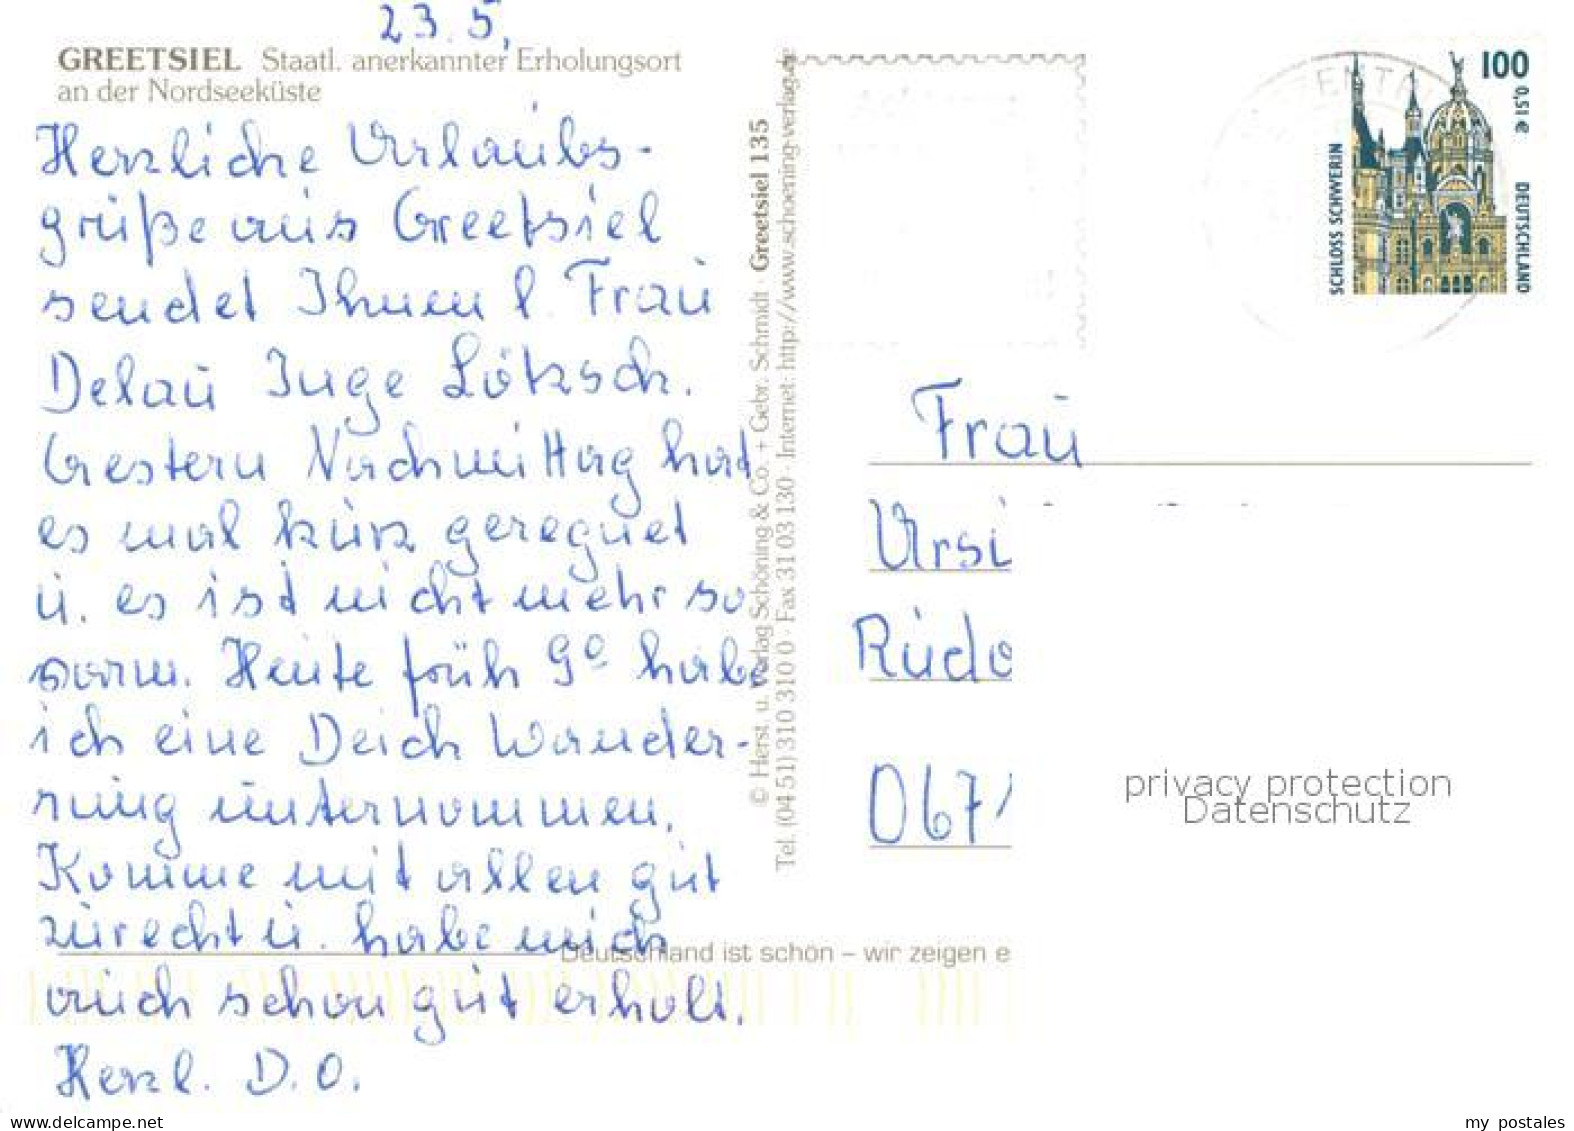 23.5.
GREETSIEL Staatl. anerkannter Erholungsort
an der Nordseeküste
Herzliche Urlaubs-
grüße aus Greetsiel
sendet Ihnen l. Frau
Delau Inge Lötzsch.
Gestern Nachmittag hat
es mal kurz geregnet
u. es ist nicht mehr so
warm. Heute früh 9° habe
ich eine Deich Wander-
rung unternommen.
Komme mit allen gut
zurecht u. habe mich
auch schon gut erholt.
Herzl. D.O.
© Herst. u. Verlag Schöning & Co. + Gebr. Schmidt · Greetsiel 135
Tel. (04 51) 310 310 0 · Fax 31 03 130 · Internet: http://www.schoening-verlag.de
100
0,51 €
SCHLOSS SCHWERIN
DEUTSCHLAND
Frau
Ursu
Rudo
0671
privacy protection
Datenschutz
Deutschland ist schön – wir zeigen e
www.ansichtskarten-center.de
my postales